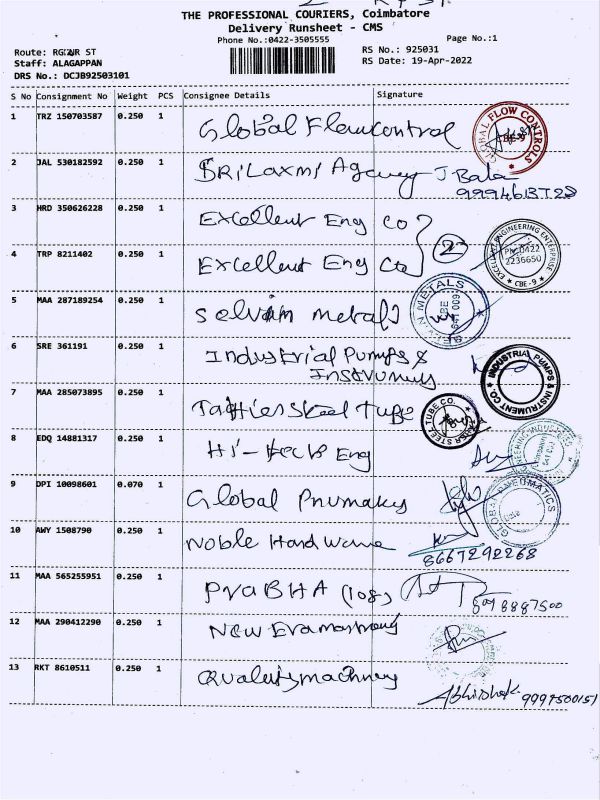 THE PROFESSIONAL COURIERS, Coimbatore
Delivery Runsheet - CMS
Phone No.:0422-3505555
Page No.:1
Route: ST
RS No.: 925031
Staff: ALAGAPPAN
RS Date: 19-Apr-2022
DRS No.: DCJB92503101
S No Consignment No Weight PCS Consignee Details Signature
1 TRZ 150703587 0.250 1 Global Flowcontrol
GLOBAL FLOW CONTROLS CBE-9
2 JAL 530182592 0.250 1 SRiLaxmi Agency J. Bala
3 HRD 350626228 0.250 1 Excellent Eng Co
4 TRP 8211402 0.250 1 Excellent Eng 2
EXCELLENT ENGINEERING ENTERPRISE PH:0422 2236650 CBE-9
5 MAA 287189254 0.250 1 Selvam metals
SELVAN METALS CBE 641 009
6 SRE 361191 0.250 1 Industrial Pumps &
INDUSTRIAL PUMPS & INSTRUMENT CO.
7 MAA 285073895 0.250 1 Steel Tube
STEEL TUBE CO.
8 EDQ 14881317 0.250 1 Hi-tech Eng
9 DPI 10098601 0.070 1 Global
GLOBAL PNEUMATICS
10 AWY 1508790 0.250 1 Noble Hardware
8667292268
11 MAA 565255951 0.250 1 PRABHA (108)
12 MAA 290412290 0.250 1 New Era
13 RKT 8610511 0.250 1 Quality machinery
Abhishek